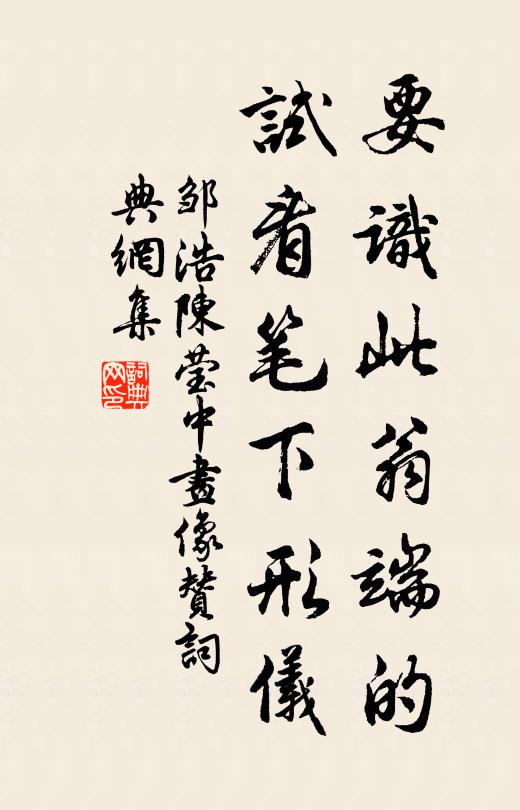 要識此翁端的
試看笔下形儀
邹浩陳莹中畫像赞詞
典網集
詞典网印